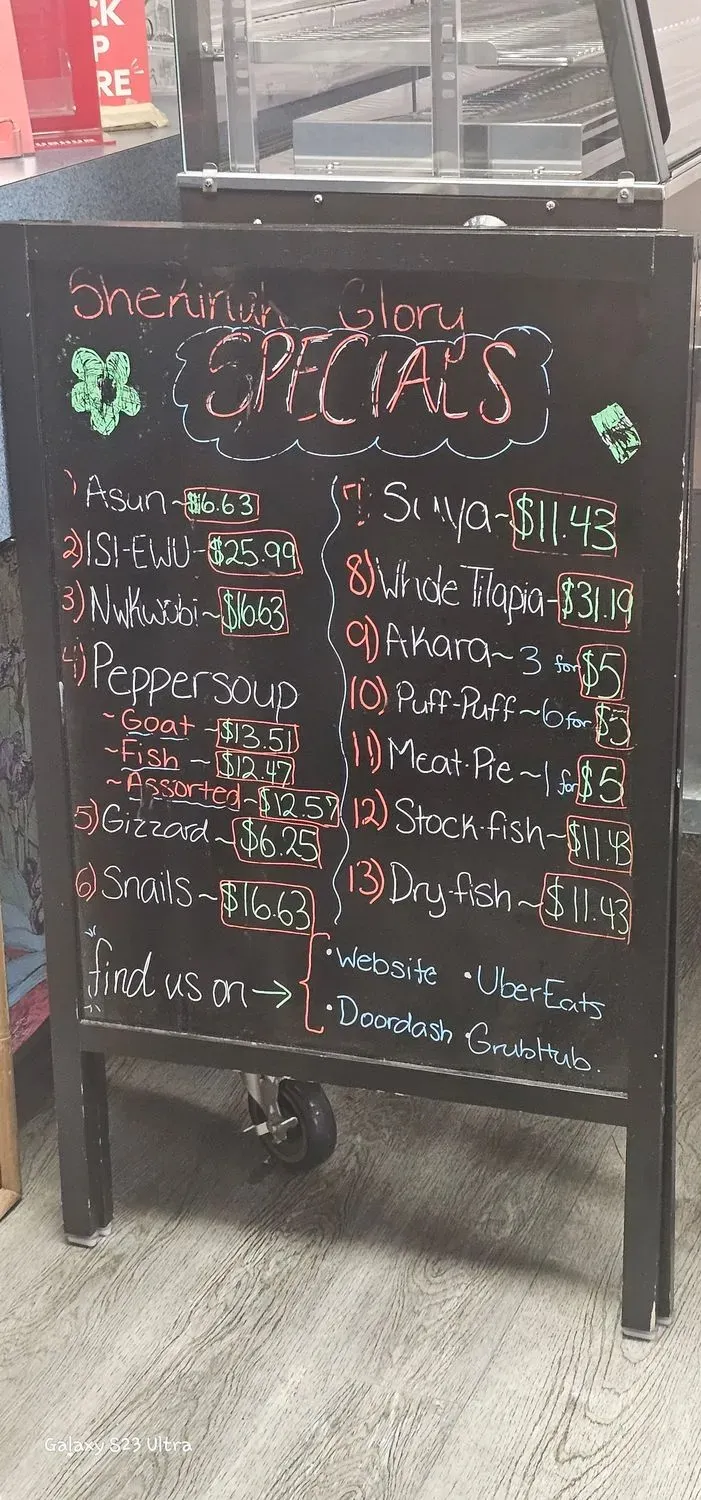 CK
P
RE
Shekinah Glory
SPECIALS
1) Asun ~ $16.63
2) ISI-EWU ~ $25.99
3) Nwkwobi ~ $16.63
4) Peppersoup
~ Goat ~ $13.51
~ Fish ~ $12.47
~ Assorted ~ $12.57
5) Gizzard ~ $6.25
6) Snails ~ $16.63
7) Suya ~ $11.43
8) Whole Tilapia - $31.19
9) Akara ~ 3 for $5
10) Puff-Puff ~ 6 for $5
11) Meat-Pie ~ 1 for $5
12) Stock-fish ~ $11.43
13) Dry-fish ~ $11.43
find us on →
• Website • UberEats
• Doordash • GrubHub.
Galaxy S23 Ultra